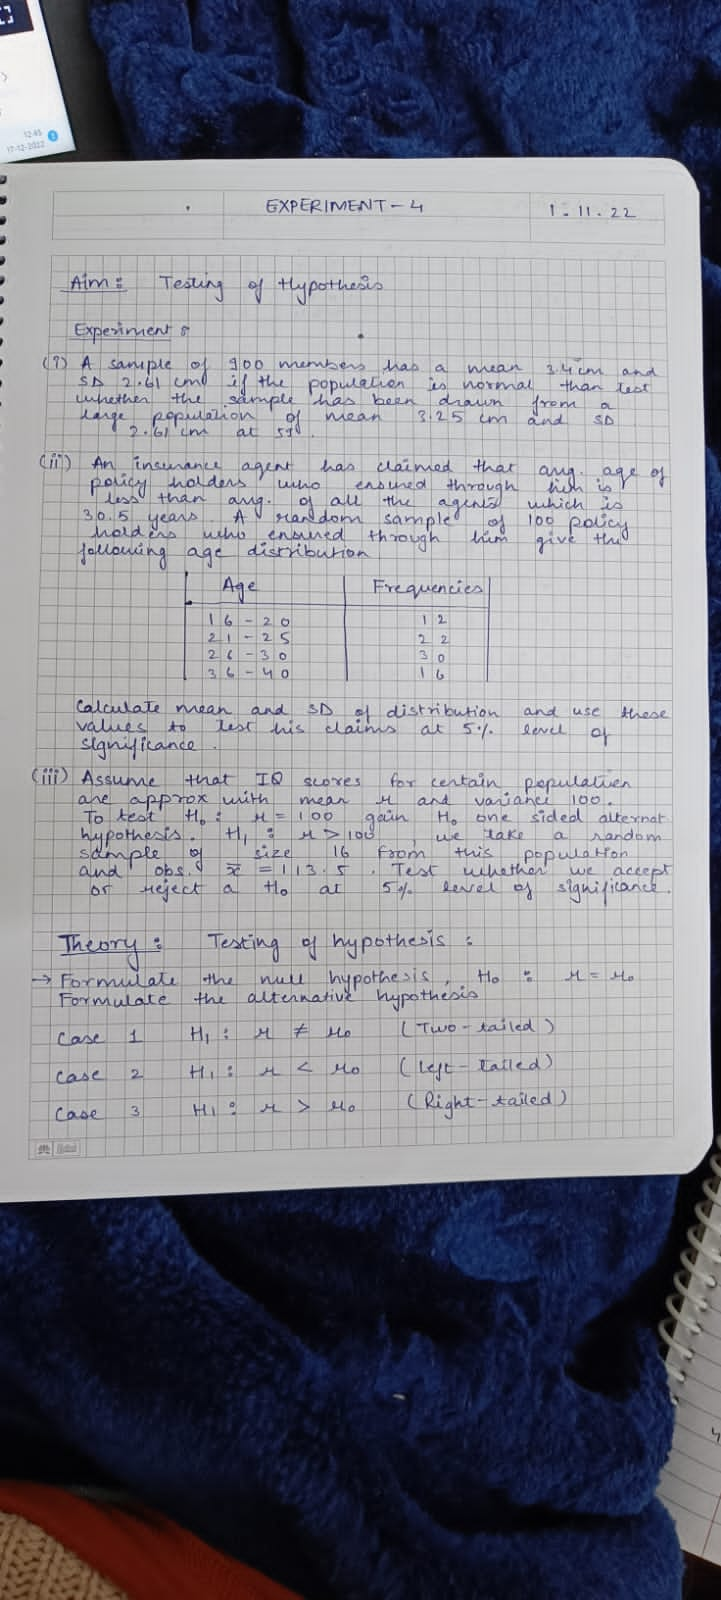 12:45
17-12-2022
EXPERIMENT - 4
1 - 11 - 22
Aim : Testing of Hypothesis
Experiment :
(i) A sample of 900 members has a mean 3.4 cm and
SD 2.61 cm if the population is normal than test
whether the sample has been drawn from a
large population of mean 3.25 cm and SD
2.61 cm at 5%.
(ii) An insurance agent has claimed that avg. age of
policy holders who ensured through him is
less than avg. of all the agents which is
30.5 years. A random sample of 100 policy
holders who ensured through him give the
following age distribution
Age Frequencies
16 - 20 12
21 - 25 22
26 - 30 30
36 - 40 16
Calculate mean and SD of distribution and use these
values to test his claims at 5% level of
significance.
(iii) Assume that IQ scores for certain population
are approx with mean μ and variance 100.
To test H₀ : μ = 100 gain H₀ one sided alternat
hypothesis. H₁ : μ > 100, we take a random
sample of size 16 from this population
and obs. x̄ = 113.5. Test whether we accept
or reject a H₀ at 5% level of significance.
Theory : Testing of hypothesis :
→ Formulate the null hypothesis, H₀ : μ = μ₀
Formulate the alternative hypothesis
Case 1 H₁ : μ ≠ μ₀ (Two-tailed)
Case 2 H₁ : μ < μ₀ (Left-tailed)
Case 3 H₁ : μ > μ₀ (Right-tailed)